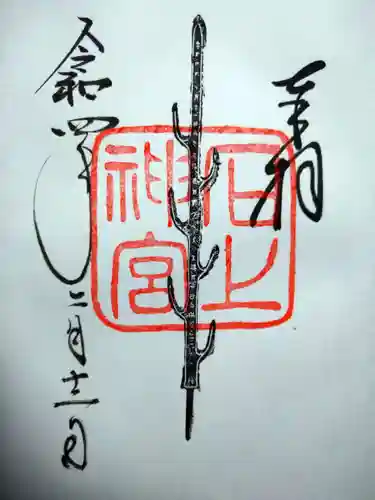 奉拝
石上
神宮
令和四年
二月十二日